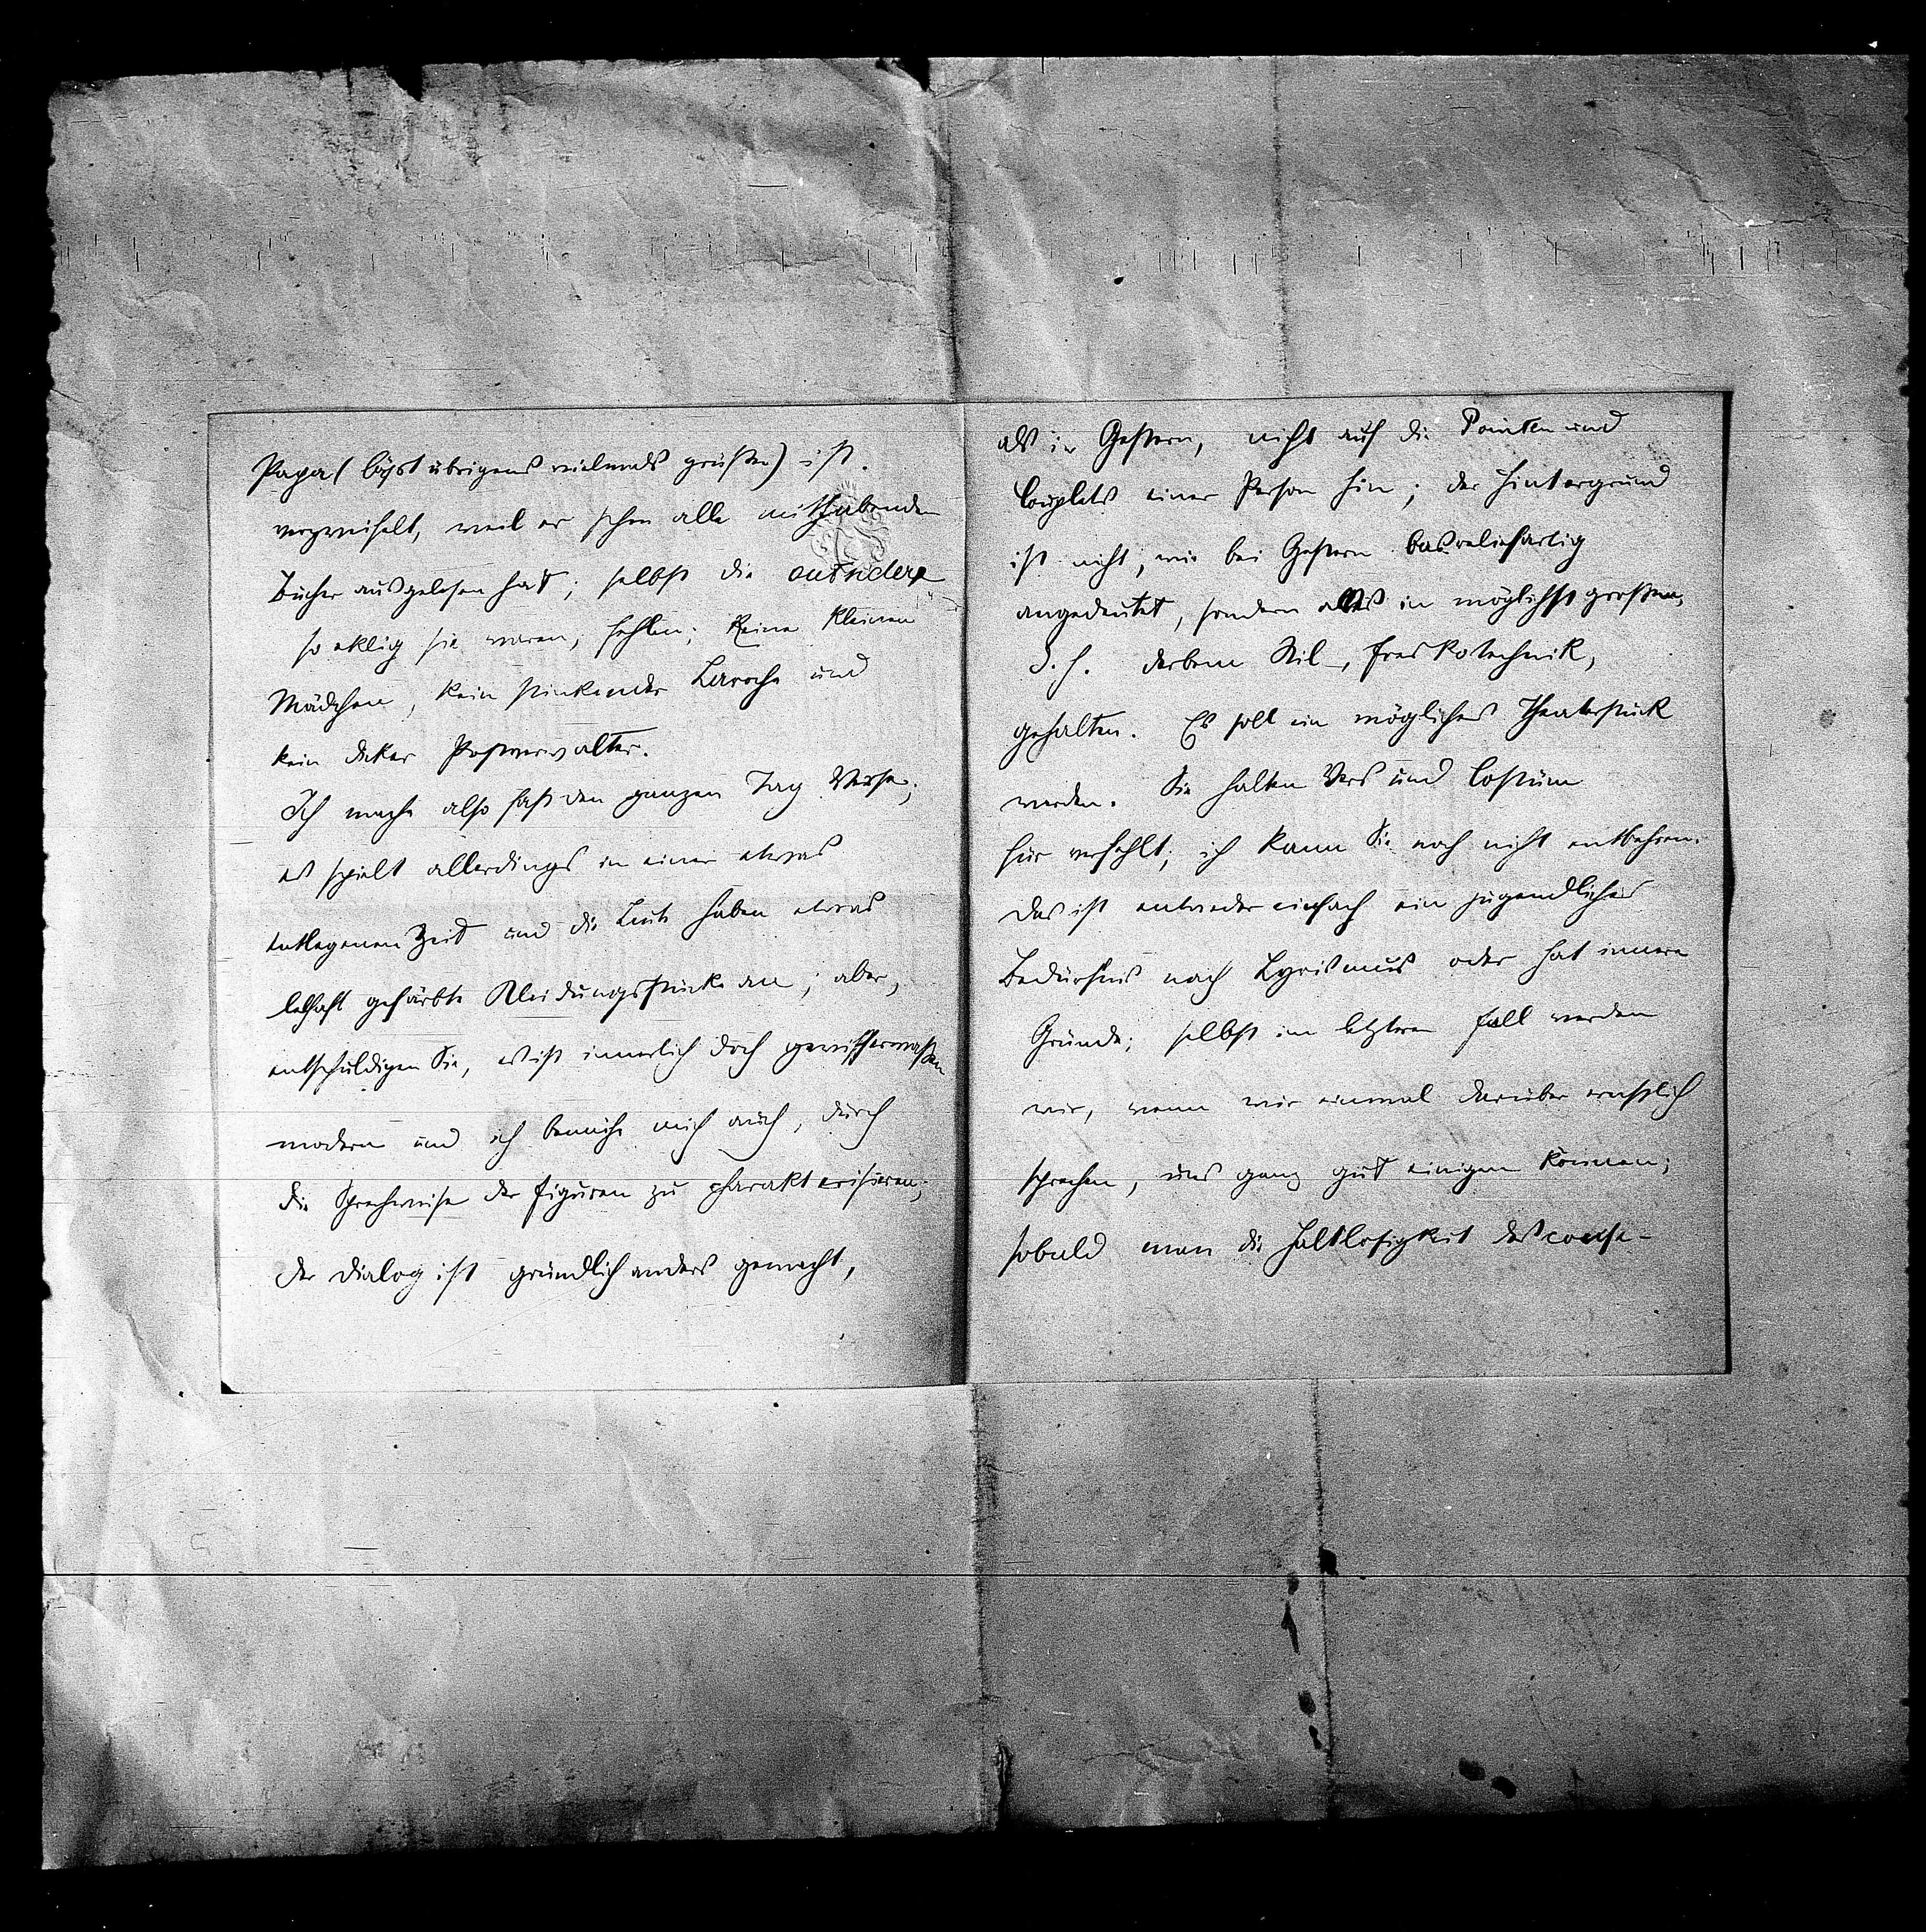 Papa (lässt übrigens vielmals grüßen) ist
verzweifelt, weil er schon alle mithabenden
Bücher ausgelesen hat; selbst die outsiders
so eklig sie waren, fehlen; keine kleinen
Mädchen, kein stinkender Laroche und
kein dicker Postverwalter.
Ich mache also fast den ganzen Tag Verse;
es spielt allerdings in einer etwas
entlegenen Zeit und die Leute haben etwas
lebhaft gefärbte Kleidungsstücke an; aber,
entschuldigen Sie, es ist innerlich doch gewissermaßen
modern und ich bemühe mich auch, durch
die Sprechweise der Figuren zu charakterisieren;
der Dialog ist gründlich anders gemacht,
als in Gestern, nicht auf die Pointen und
Couplets einer Person hin; der Hintergrund
ist nicht, wie bei Gestern basreliefartig
angedeutet, sondern alles in möglichst großem,
d. h. derbem Stil, Freskotechnik,
gehalten. Es soll ein mögliches Theaterstück
werden. Sie halten Vers und Costüm
für verfehlt; ich kann Sie noch nicht entbehren.
Das ist entweder einfach ein jugendliches
Bedürfnis nach Lyrismus oder hat innere
Gründe; selbst im letztern Fall werden
wir, wenn wir einmal darüber ernstlich
sprechen, uns ganz gut einigen können;
sobald man die Haltlosigkeit des conse-